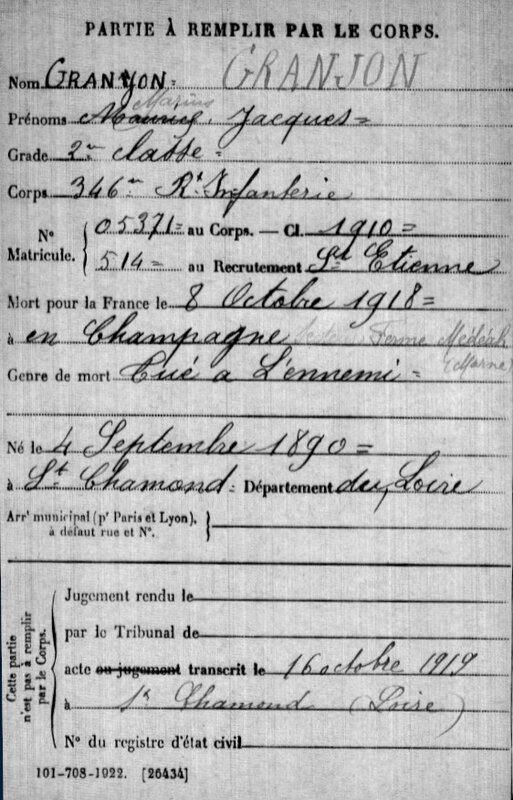 PARTIE À REMPLIR PAR LE CORPS.
Nom GRANJON = GRANJON
Marius
Prénoms Maurice, Jacques =
Grade 2me classe =
Corps 346me Rt Infanterie
N° Matricule. { 05371 = au Corps. — Cl. 1910 =
514 = au Recrutement St Etienne
Mort pour la France le 8 Octobre 1918 =
à en Champagne Ferme Médéah
(Marne)
Genre de mort Tué a L'ennemi =
Né le 4 Septembre 1890 =
à St Chamond = Département du Loire
Arrt municipal (pr Paris et Lyon), }
à défaut rue et N°.
Cette partie n'est pas à remplir par le Corps.
Jugement rendu le
par le Tribunal de
acte ou jugement transcrit le 16 octobre 1919
à St Chamond (Loire)
N° du registre d'état civil
101-708-1922. [26434]